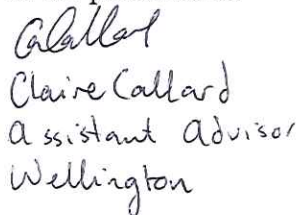 Claire Callard
assistant advisor
Wellington